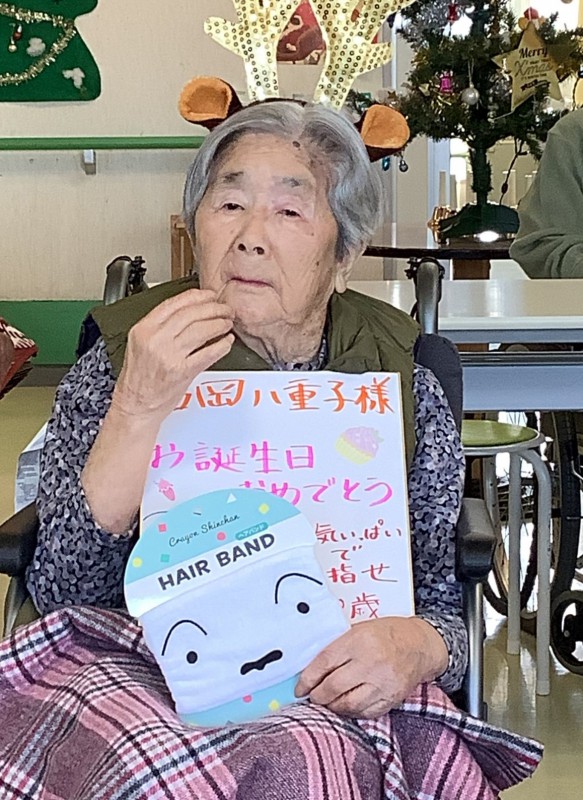 Merry
Xmas
岡八重子様
お誕生日
おめでとう
気いっぱい
で
指せ
歳
Crayon Shinchan
ヘアバンド
HAIR BAND